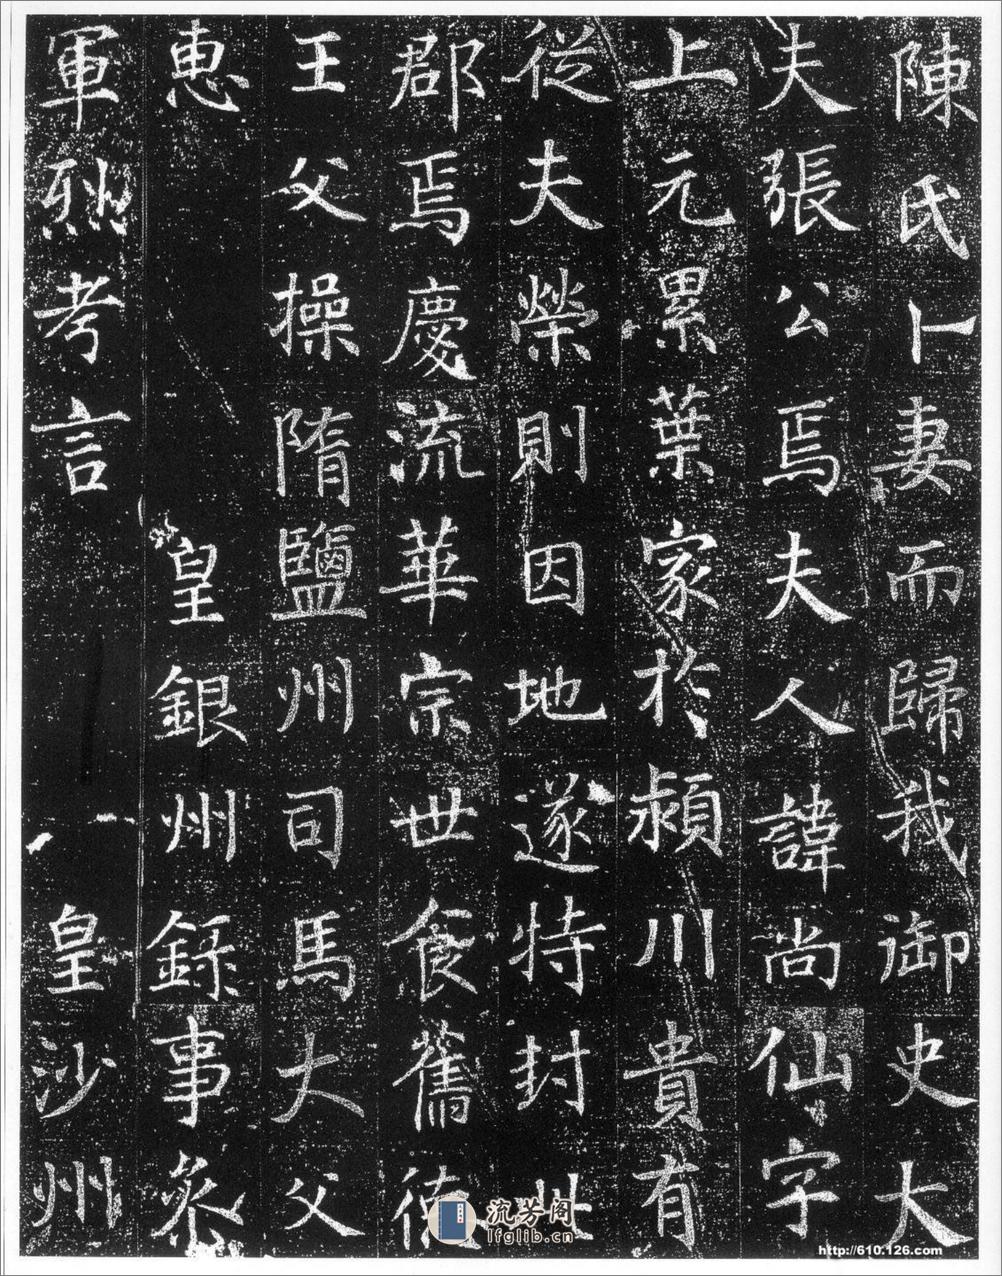 陳氏卜妻而歸我御史大
夫張公焉夫人諱尚仙字
上元累葉家於潁川貴有
從夫榮則因地遂特封
郡焉慶流華宗世食舊德
王父操隋鹽州司馬大父
惠 皇銀州錄事參
軍烈考言 皇沙州
流芳阁
lfglib.cn
http://610.126.com